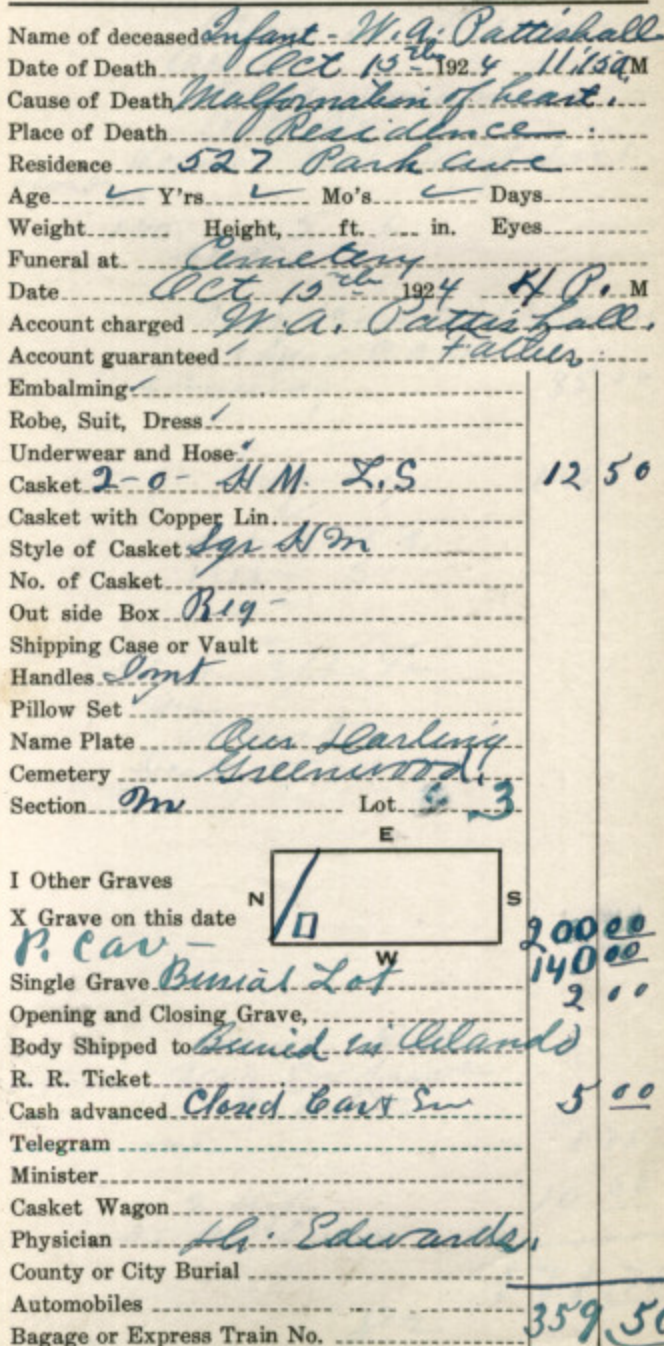 Name of deceased Infant - W. A. Pattishall
Date of Death Oct 15th 1924 11:15 a M
Cause of Death Malformation of heart.
Place of Death Residence.
Residence 527 Park Ave
Age ✓ Y'rs ✓ Mo's ✓ Days
Weight Height, ft. in. Eyes
Funeral at Cemetery
Date Oct 15th 1924 4 P. M
Account charged W. A. Pattishall.
Account guaranteed Father
Embalming
Robe, Suit, Dress
Underwear and Hose
Casket 2-0- H M. L.S 12 50
Casket with Copper Lin.
Style of Casket Sqr H m
No. of Casket
Out side Box Reg -
Shipping Case or Vault
Handles
Pillow Set
Name Plate Our Darling
Cemetery Greenwood.
Section M Lot 3
E
I Other Graves
N S
X Grave on this date 200 00
P. Car - W 140 00
Single Grave Burial Lot 2 00
Opening and Closing Grave,
Body Shipped to Buried in Orlando
R. R. Ticket
Cash advanced Closed Car 5 00
Telegram
Minister
Casket Wagon
Physician Dr. Edwards.
County or City Burial
Automobiles 359 50
Bagage or Express Train No.